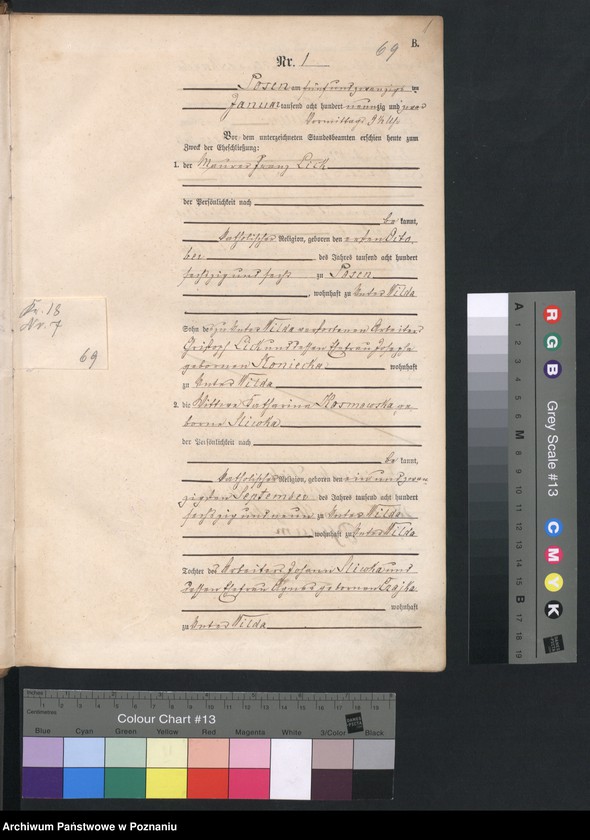 1
69
B.
Nr. 1
Posen am fünfundzwanzigs ten
Januar tausend acht hundert neunzig und
Vormittags 9 ½ Uhr
Vor dem unterzeichneten Standesbeamten erschien heute zum
Zweck der Eheschließung:
1. der Maurer Franz Lick
der Persönlichkeit nach
be kannt,
katholischer Religion, geboren den ersten Octo
ber des Jahres tausend acht hundert
sechszig und sechs zu Posen
, wohnhaft zu Unter Wilda
Sohn des zu Unter Wilda verstorbenen Arbeiters
Lick und dessen Ehefrau Josepha
geborenen Konieczka wohnhaft
zu Unter Wilda
2. die Wittwe Katharina Kosmowska ge
borene Sliwka
der Persönlichkeit nach
be kannt,
katholischer Religion, geboren den einundzwan
zigsten September des Jahres tausend acht hundert
sechszig und neun zu Unter Wilda
wohnhaft zu Unter Wilda
Tochter des Arbeiters Johann Sliwka und
dessen Ehefrau Agnes geborenen Czajka
wohnhaft
zu Unter Wilda
Nr. 7
69
A 1 2 3 4 5 6 M 8 9 10 11 12 13 14 15 B 17 18 19
R G B
Grey Scale #13
C M Y K
Inches
Centimetres
Colour Chart #13
Blue Cyan Green Yellow Red Magenta White 3/Color Black
Archiwum Państwowe w Poznaniu